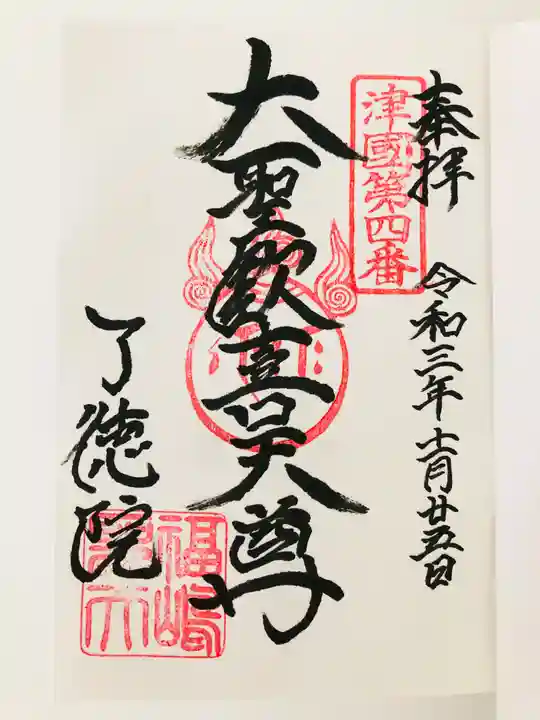 奉拝
令和三年十一月廿五日
津國第四番
大聖歓喜天尊
了徳院
福嶋